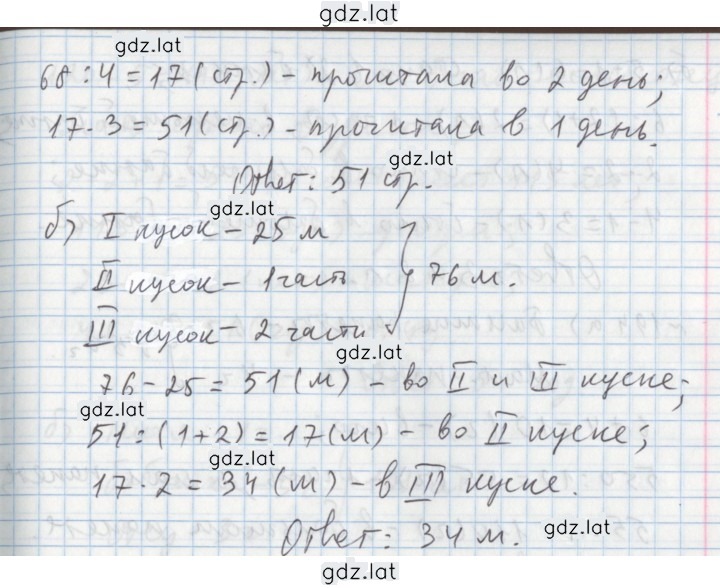 gdz.lat
gdz.lat
68 : 4 = 17 (стр.) - прочитала во 2 день;
17 · 3 = 51 (стр.) - прочитала в 1 день.
gdz.lat
Ответ: 51 стр.
gdz.lat
б) I кусок - 25 м
II кусок - 1 часть } 76 м.
III кусок - 2 части
gdz.lat
76 - 25 = 51 (м) - во II и III куске;
gdz.lat
51 : (1 + 2) = 17 (м) - во II куске;
gdz.lat
17 · 2 = 34 (м) - в III куске.
Ответ: 34 м. gdz.lat
gdz.lat